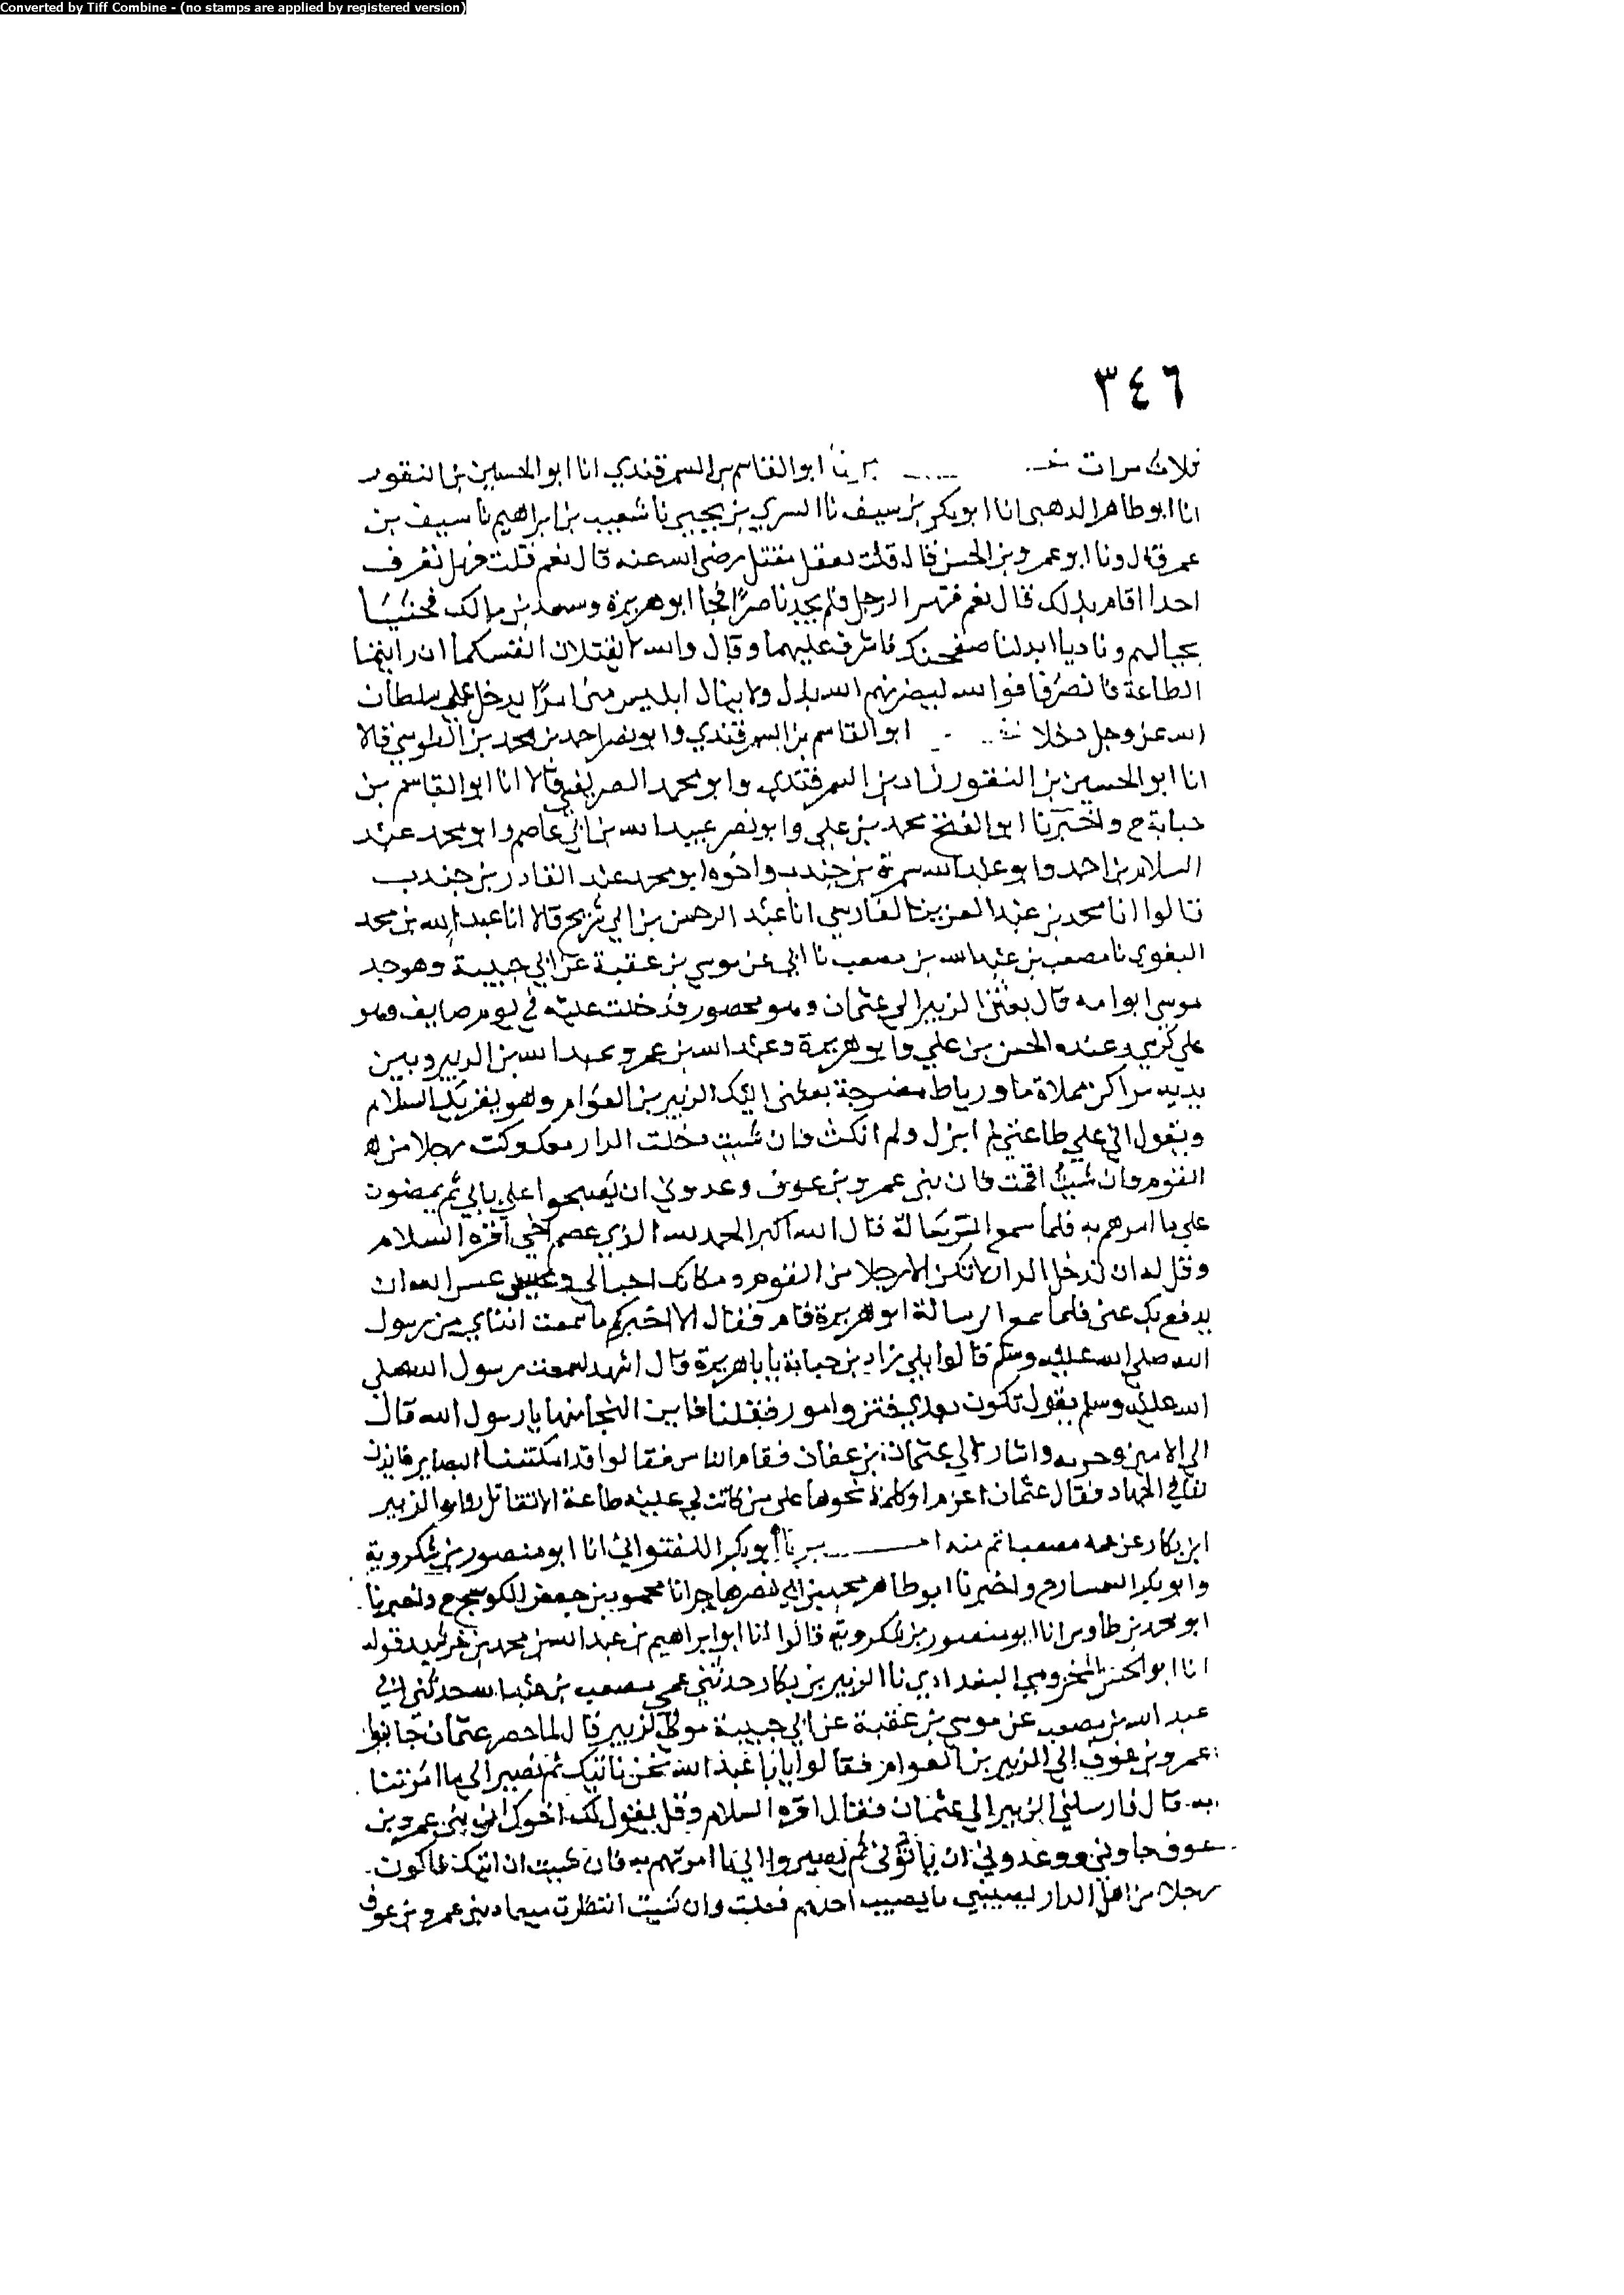 Converted by Tiff Combine - (no stamps are applied by registered version)
٣٤٦
ثلاث مرات ابو القاسم بن السمرقندي انا ابو الحسين بن النقور
انا ابو طاهر الدهبى انا ابو بكر بن سيف نا السري بن يحيى نا شعيب بن ابراهيم نا سيف بن
عمر قال ونا ابو عمرو بن الحسن قال قلت مقتل رضى الله عنه قال نعم قلت فهل تعرف
احدا اقام بذلك قال نعم الرجل فلم يجد ناصرًا فجا ابو هريرة وسعد بن مالك فجثيا
بحيالهم وناديا ابدلنا فاشرف عليهما وقال والله لا تقتلان انفسكما ان رايتما
الطاعة فانصرفا فوالله ليضربنهم الله بذل ولا ينال ابليس منى امرًا يدخل على سلطان
الله عز وجل دخلا ابو القاسم بن السمرقندي وابو نصر احمد بن محمد بن الطوسي قالا
انا ابو الحسين بن النقور زاد بن السمرقندي وابو محمد الصريفيني قالا انا ابو القاسم بن
حبابة ح واخبرنا ابو الفتح محمد بن علي وابو نصر عبيد الله بن ابي عاصم وابو محمد عبد
السلام بن احمد وابو عبد الله سمرة بن جندب واخوه ابو محمد عبد القادر بن جندب
قالوا انا محمد بن عبد العزيز الفارسي انا عبد الرحمن بن ابي شريح قالا انا عبد الله بن محمد
البغوي نا مصعب بن عبد الله بن مصعب نا ابي عن موسى بن عقبة عن ابي حبيبة وهو جد
موسى ابو امه قال بعثنى الزبير الى عثمان وهو محصور فدخلت عليه في يوم صايف وهو
على كرسي وعنده الحسن بن علي وابو هريرة وعبد الله بن عمر وعبد الله بن الزبير وبين
يديه مراكن مملاة ما ورياط بعثنى اليك الزبير بن العوام وهو يقريك السلام
ويقول اني على طاعتي لم ابزل ولم انكث فان شيت دخلت الدار معك وكنت رجلا من
القوم وان شيت اقمت فان بنى عمرو بن عوف وعدوني ان يصبحوا على بابي ثم يمضون
على ما امرهم به فلما سمع الرسالة قال الله اكبر الحمد لله الذي عصم اخي اقره السلام
وقل له ان تدخل الدار لا تكن الا رجلا من القوم ومكانك احب الي وعسى الله ان
يدفع بك عنى فلما سمع الرسالة ابو هريرة قام فقال الا اخبركم ما سمعت اذناي من رسول
الله صلى الله عليه وسلم قالوا بلى زاد بن حبابة يا با هريرة قال اشهد لسمعت رسول الله صلى
الله عليه وسلم يقول تكون بعدي فتن وامور فقلنا فاين النجا منها يا رسول الله قال
الى الامين وحزبه واشار الى عثمان بن عفان فقام الناس فقالوا قد امكنتنا البصاير فايذن
لنا في الجهاد فقال عثمان اعزم او كلمة نحوها على من كانت لي عليه طاعة الا تقاتل رواه الزبير
ابن بكار عن عمه مصعب اتم منه ابو بكر اللفتواني انا ابو منصور بن شكروية
وابو بكر السمسار ح واخبرنا ابو طاهر محمد بن ابي نصر هاجر انا محمود بن جعفر الكوسج ح واخبرنا
ابو محمد بن طاوس انا ابو منصور بن شكروية قالوا انا ابو ابراهيم بن عبد الله بن محمد بن خرشيد قوله
انا ابو الحسن المخزومي البغدادي نا الزبير بن بكار حدثني عمي مصعب بن عبد الله حدثني ابي
عبد الله بن مصعب عن موسى بن عقبة عن ابي حبيبة مولى الزبير قال لما حصر عثمان جا بنوا
عمرو بن عوف الى الزبير بن العوام فقالوا يا ابا عبد الله نحن ناتيك ثم نصير الى ما امرتنا
به قال فارسلني الزبير الى عثمان فقال اقره السلام وقل يقول لك اخوك ان بنى عمرو بن
عوف جاوني ووعدوني ان ياتوني ثم يصيروا الى ما امرتهم به فان شيت ان اتيك فاكون
رجلا من اهل الدار يصيبني ما يصيب احدهم فعلت وان شيت انتظرت ميعاد بنى عمرو بن عوف